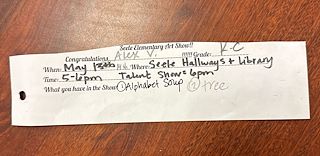 Seele Elementary Art Show!!
Congratulations Alex V. !!!!!! Grade: K-C
When: May 13th Where: Seele Hallways & Library
Time: 5-6pm Talent Show: 6pm
What you have in the Show: ① Alphabet Soup ② tree